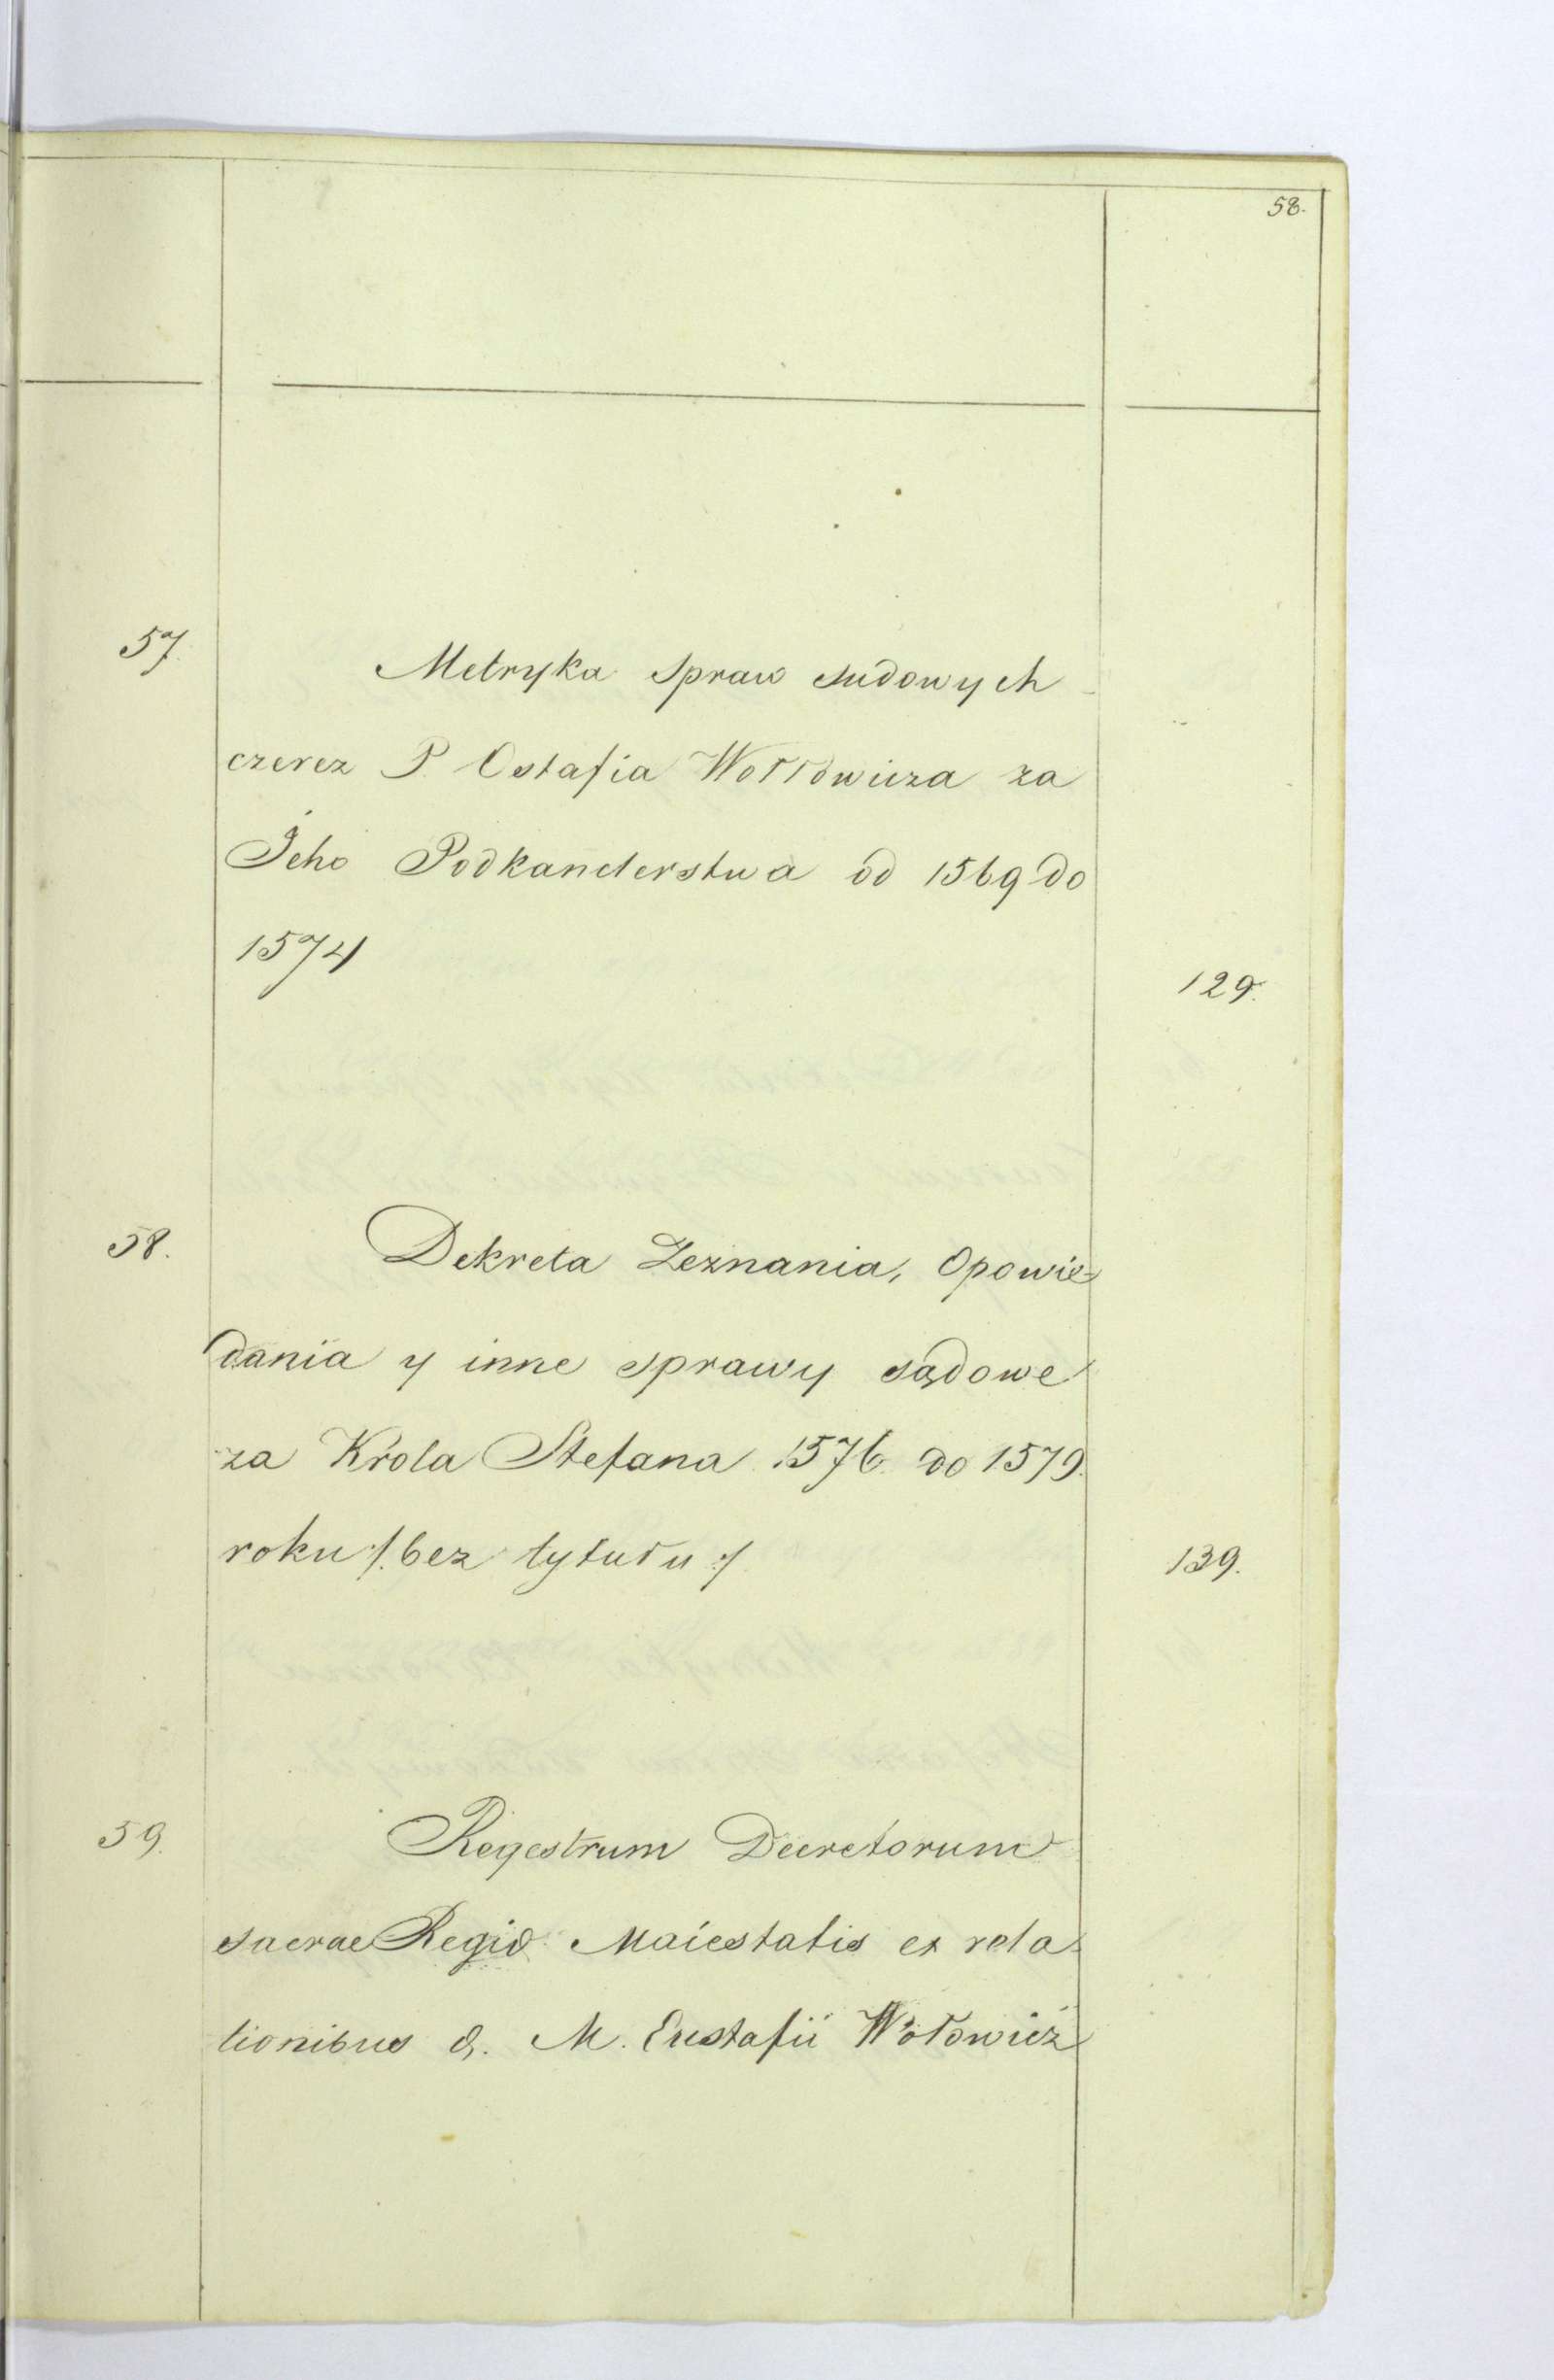 58.
57.
Metryka spraw sudowych
czerez P. Ostafia Wołłowicza za
Jeho Podkanclerstwa od 1569 do
1574
129.
58.
Dekreta Zeznania, Opowie=
dania y inne sprawy sądowe
za Krola Stefana 1576. do 1579.
roku /:bez tytułu:/
139.
59.
Regestrum Decretorum
sacrae Regio Maiestatis ex rela=
tionibus d. M. Eustafii Wołowicz